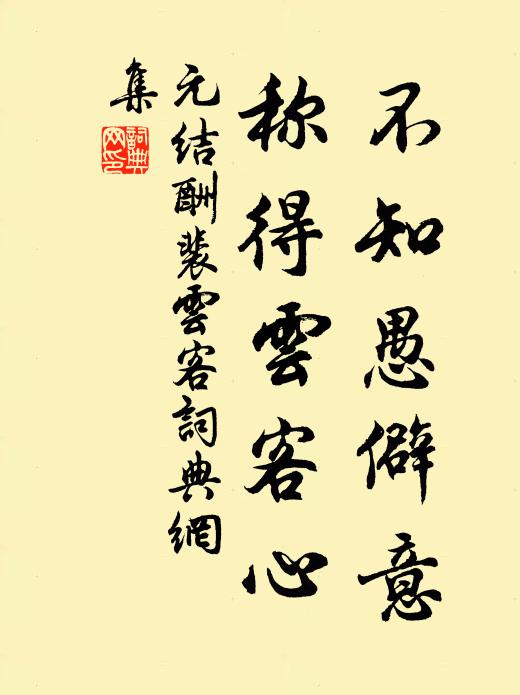 不知愚僻意
称得雲客心
元结酬裴雲客詞典網
集
詞典
网印